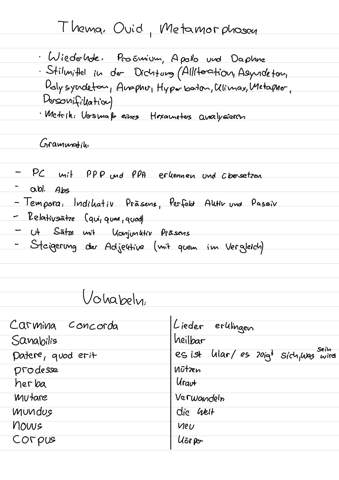 Thema: Ovid, Metamorphosen
· Wiederholo: Proömium, Apollo und Daphne
· Stilmittel in der Dichtung (Alliteration, Asyndeton,
Polysyndeton, Anapher, Hyperbaton, Klimax, Metapher,
Personifikation)
· Metrik: Versmaß eines Hexameters analysieren
Grammatik:
- PC mit PPP und PPA erkennen und übersetzen
- abl. Abs
- Tempora: Indikativ Präsens, Perfekt Aktiv und Passiv
- Relativsätze (qui, quae, quod)
- ut Sätze mit Konjunktiv Präsens
- Steigerung der Adjektive (mit quam im Vergleich)
Vokabeln:
Carmina concorda | Lieder erklingen
Sanabilis | heilbar
Patere, quod erit | es ist klar/ es zeigt sich, was sein wird
prodesse | nützen
herba | Kraut
mutare | verwandeln
mundus | die Welt
novus | neu
corpus | Körper